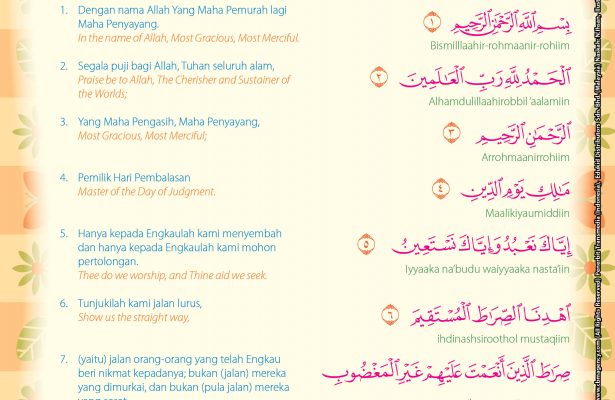 1. Dengan nama Allah Yang Maha Pemurah lagi
Maha Penyayang.
In the name of Allah, Most Gracious, Most Merciful.
بِسْمِ ٱللَّهِ ٱلرَّحْمَٰنِ ٱلرَّحِيمِ ١
Bismilllaahir-rohmaanir-rohiim
2. Segala puji bagi Allah, Tuhan seluruh alam,
Praise be to Allah, The Cherisher and Sustainer of
the Worlds;
ٱلْحَمْدُ لِلَّهِ رَبِّ ٱلْعَالَمِينَ ٢
Alhamdulillaahirobbil 'aalamiin
3. Yang Maha Pengasih, Maha Penyayang,
Most Gracious, Most Merciful;
ٱلرَّحْمَٰنِ ٱلرَّحِيمِ ٣
Arrohmaanirrohiim
4. Pemilik Hari Pembalasan
Master of the Day of Judgment.
مَالِكِ يَوْمِ ٱلدِّينِ ٤
Maalikiyaumiddiin
5. Hanya kepada Engkaulah kami menyembah
dan hanya kepada Engkaulah kami mohon
pertolongan.
Thee do we worship, and Thine aid we seek.
إِيَّاكَ نَعْبُدُ وَإِيَّاكَ نَسْتَعِينُ ٥
Iyyaaka na'budu waiyyaaka nasta'iin
6. Tunjukilah kami jalan lurus,
Show us the straight way,
ٱهْدِنَا ٱلصِّرَاطَ ٱلْمُسْتَقِيمَ ٦
ihdinashsiroothol mustaqiim
7. (yaitu) jalan orang-orang yang telah Engkau
beri nikmat kepadanya; bukan (jalan) mereka
yang dimurkai, dan bukan (pula jalan) mereka
صِرَاطَ ٱلَّذِينَ أَنْعَمْتَ عَلَيْهِمْ غَيْرِ ٱلْمَغْضُوبِ